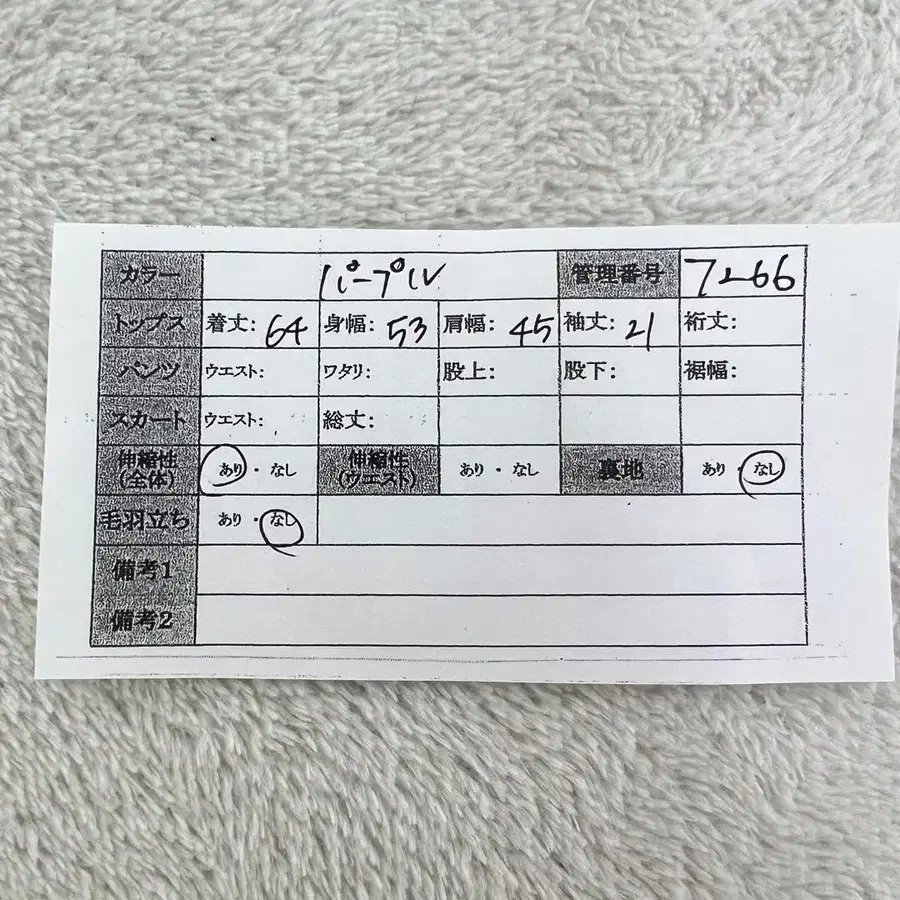 カラー パープル 管理番号 7266
トップス 着丈: 64 身幅: 53 肩幅: 45 袖丈: 21 裄丈:
パンツ ウエスト: ワタリ: 股上: 股下: 裾幅:
スカート ウエスト: 総丈:
伸縮性 (全体) あり・なし 伸縮性 (ウエスト) あり・なし 裏地 あり・なし
毛羽立ち あり・なし
備考1
備考2